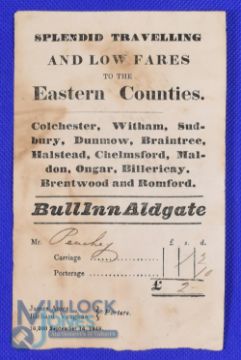 SPLENDID TRAVELLING
AND LOW FARES
TO THE
Eastern Counties.
Colchester, Witham, Sud-
bury, Dunmow, Braintree,
Halstead, Chelmsford, Mal-
don, Ongar, Billericay,
Brentwood and Romford.
Bull Inn Aldgate
Mr. £ s. d.
Carriage
Porterage 10
£ 2
MULLOCK
Porters.
10,000 September